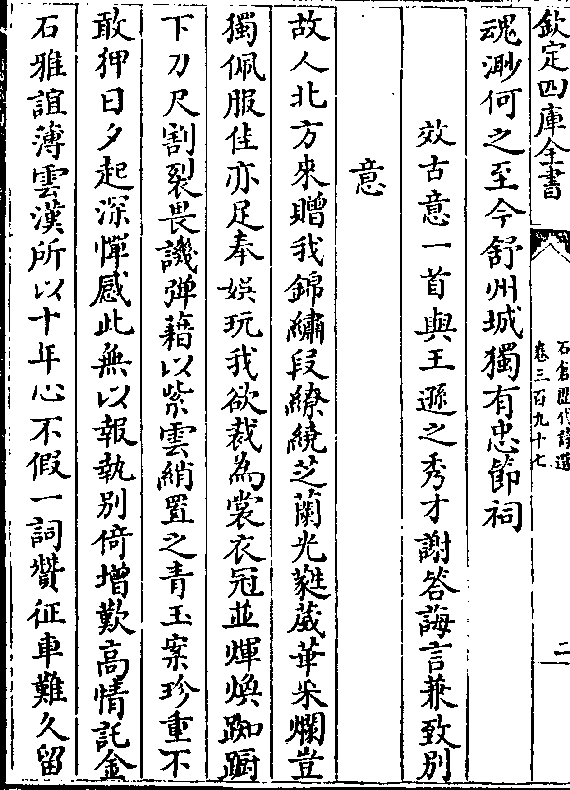 欽定四庫全書
石倉歷代詩選
卷三百九十七
二
魂渺何之至今舒州城獨有忠節祠
效古意一首與王遜之秀才謝答誨言兼致別
意
故人北方來贈我錦繡段繚繞芝蘭光蕤葳華采爛豈
獨佩服佳亦足奉娯玩我欲裁為裳衣冠並煇煥踟蹰
下刀尺割裂畏譏彈藉以紫雲綃置之青玉案珍重不
敢狎日夕起深憚感此無以報執別倚增歎髙情託金
石雅誼薄雲漢所以十年心不假一詞讚征車難久留